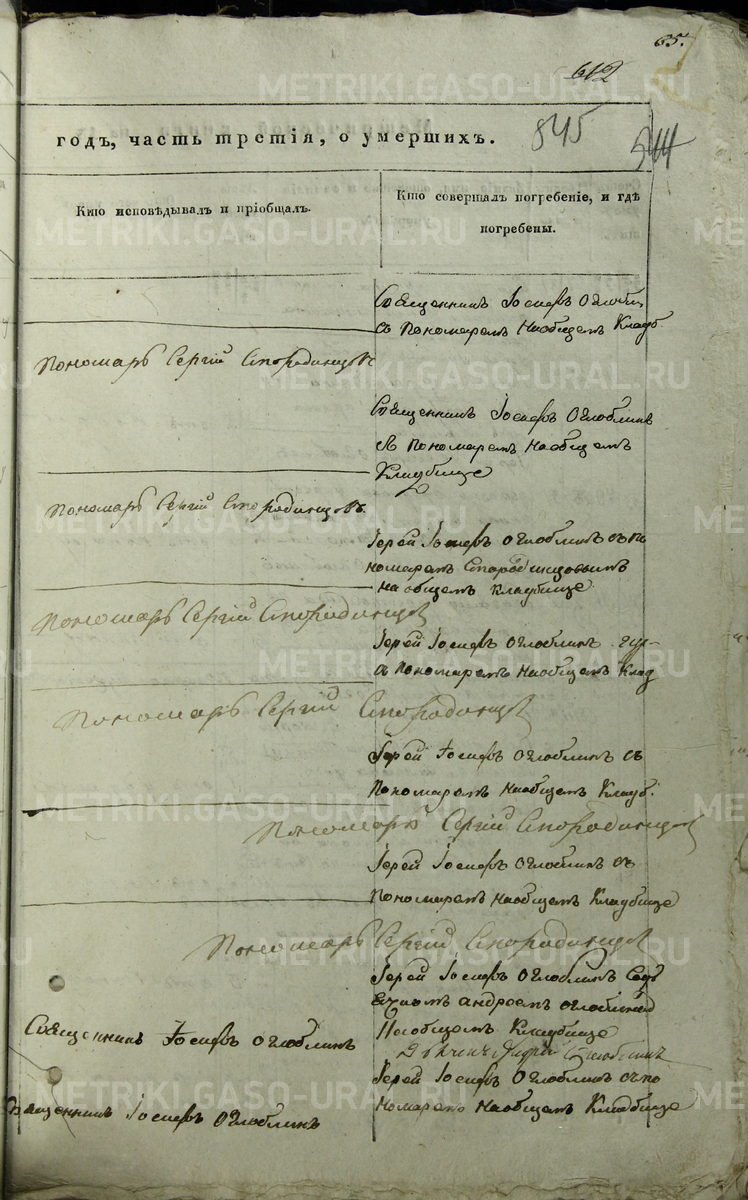 65.
612
годъ, часть третія, о умершихъ.
845
544
Кто исповѣдывалъ и пріобщалъ.
Кто совершалъ погребеніе, и гдѣ
погребены.
Священникъ Іосифъ Оглобли
съ Пономаремъ Наобщемъ Кладб
Пономарь Сергій Стародинцовъ
Священникъ Іосифъ Оглоблинъ
съ Пономаремъ Наобщемъ
Кладбище
Пономарь Сергій Стародинцовъ
Іерей Іосифъ Оглоблинъ съ по
номаремъ Стародинцовымъ
на общемъ кладбище
Пономарь Сергій Стародинцовъ
Іерей Іосифъ Оглоблинъ
съ Пономаремъ Наобщемъ Клад
Пономарь Сергій Стародинцовъ
Іерей Іосифъ Оглоблинъ съ
Пономаремъ Наобщемъ Кладб.
Пономарь Сергій Стародинцовъ
Іерей Іосифъ Оглоблинъ съ
Пономаремъ Наобщемъ Кладбище
Пономарь Сергій Стародинцовъ
Іерей Іосифъ Оглоблинъ
Андреемъ
Наобщемъ Кладбище
Священникъ Іосифъ Оглоблинъ
Іерей Іосифъ Оглоблинъ съ по
номаремъ Наобщемъ Кладбище
Священникъ Іосифъ Оглоблинъ
METRIKI.GASO-URAL.RU